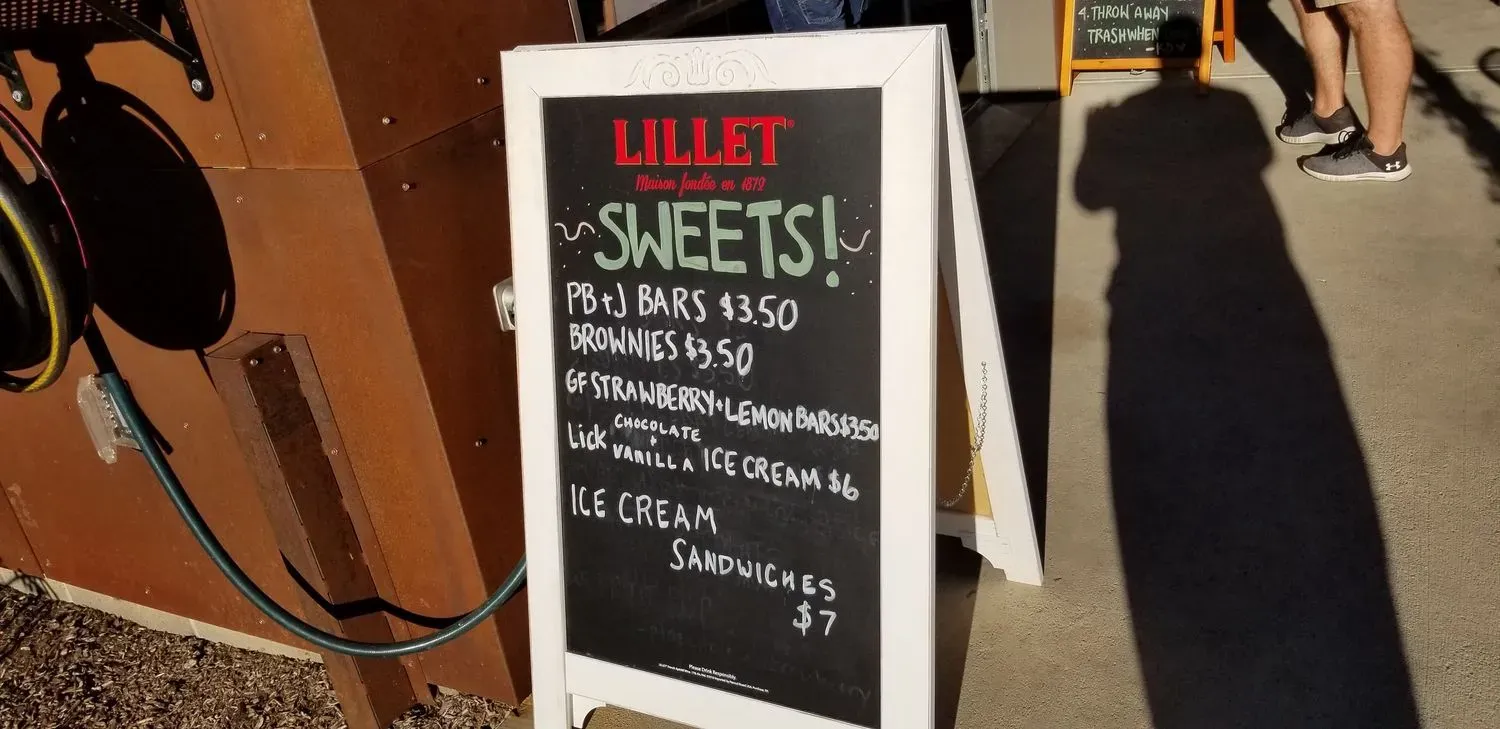 4. THROW AWAY
TRASH WHEN
LILLET®
Maison fondée en 1872
SWEETS!
PB+J BARS $3.50
BROWNIES $3.50
GF STRAWBERRY+LEMON BARS $3.50
Lick CHOCOLATE + VANILLA ICE CREAM $6
ICE CREAM
SANDWICHES
$7
Please Drink Responsibly.